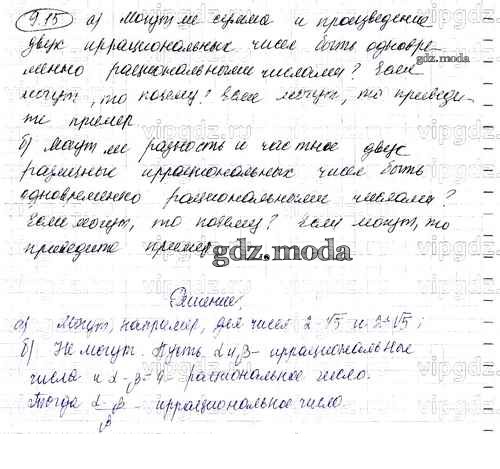 9.15 а) Могут ли сумма и произведение
двух иррациональных чисел быть одновре-
менно рациональными числами? Если
могут, то почему? Если могут, то приведи-
те пример.
б) Могут ли разность и частное двух
различных иррациональных чисел быть
одновременно рациональными числами?
Если могут, то почему? Если могут, то
приведите пример.
gdz.moda
gdz.moda
Решение.
а) Могут, например, для чисел 2-√5 и 2+√5;
б) Не могут. Пусть α и β - иррациональные
числа и α - β = - рациональное число.
Тогда - иррациональное число.
vipgdz